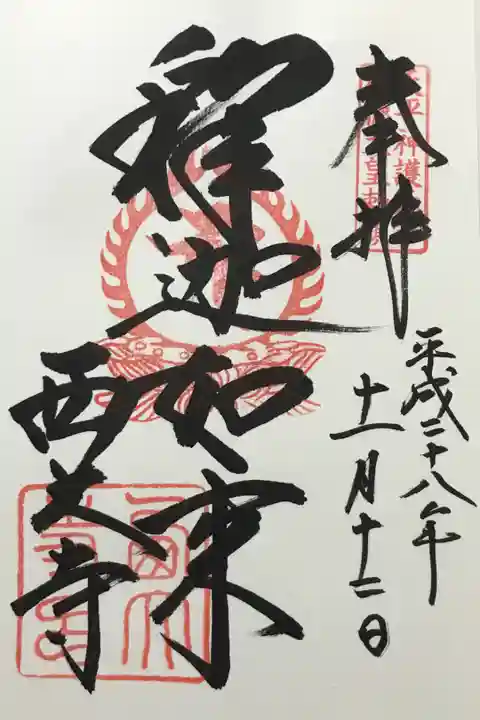 奉拝
平成二十八年
十一月十二日
釋迦如来
西大寺